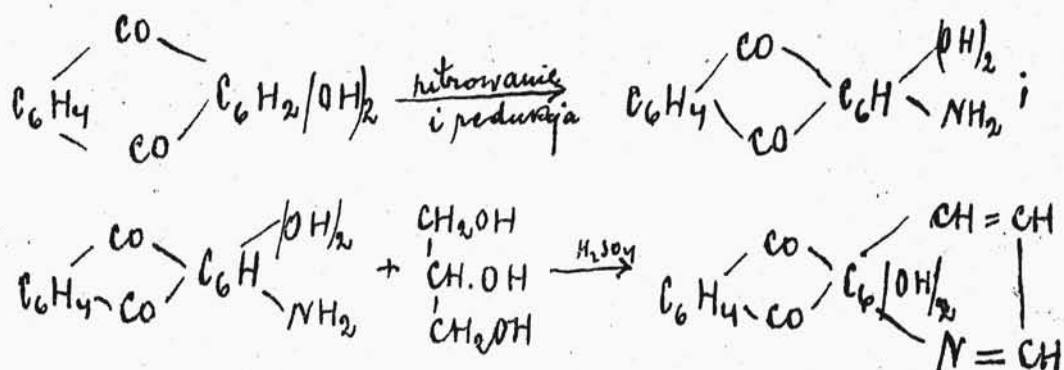 C₆H₄ CO CO C₆H₂/OH/₂ nitrowanie i redukcja C₆H₄ CO CO C₆H /OH/₂ NH₂ ;
C₆H₄ CO CO C₆H /OH/₂ NH₂ + CH₂OH CH.OH CH₂OH H₂SO₄ C₆H₄ CO CO C₆/OH/₂ CH=CH N=CH